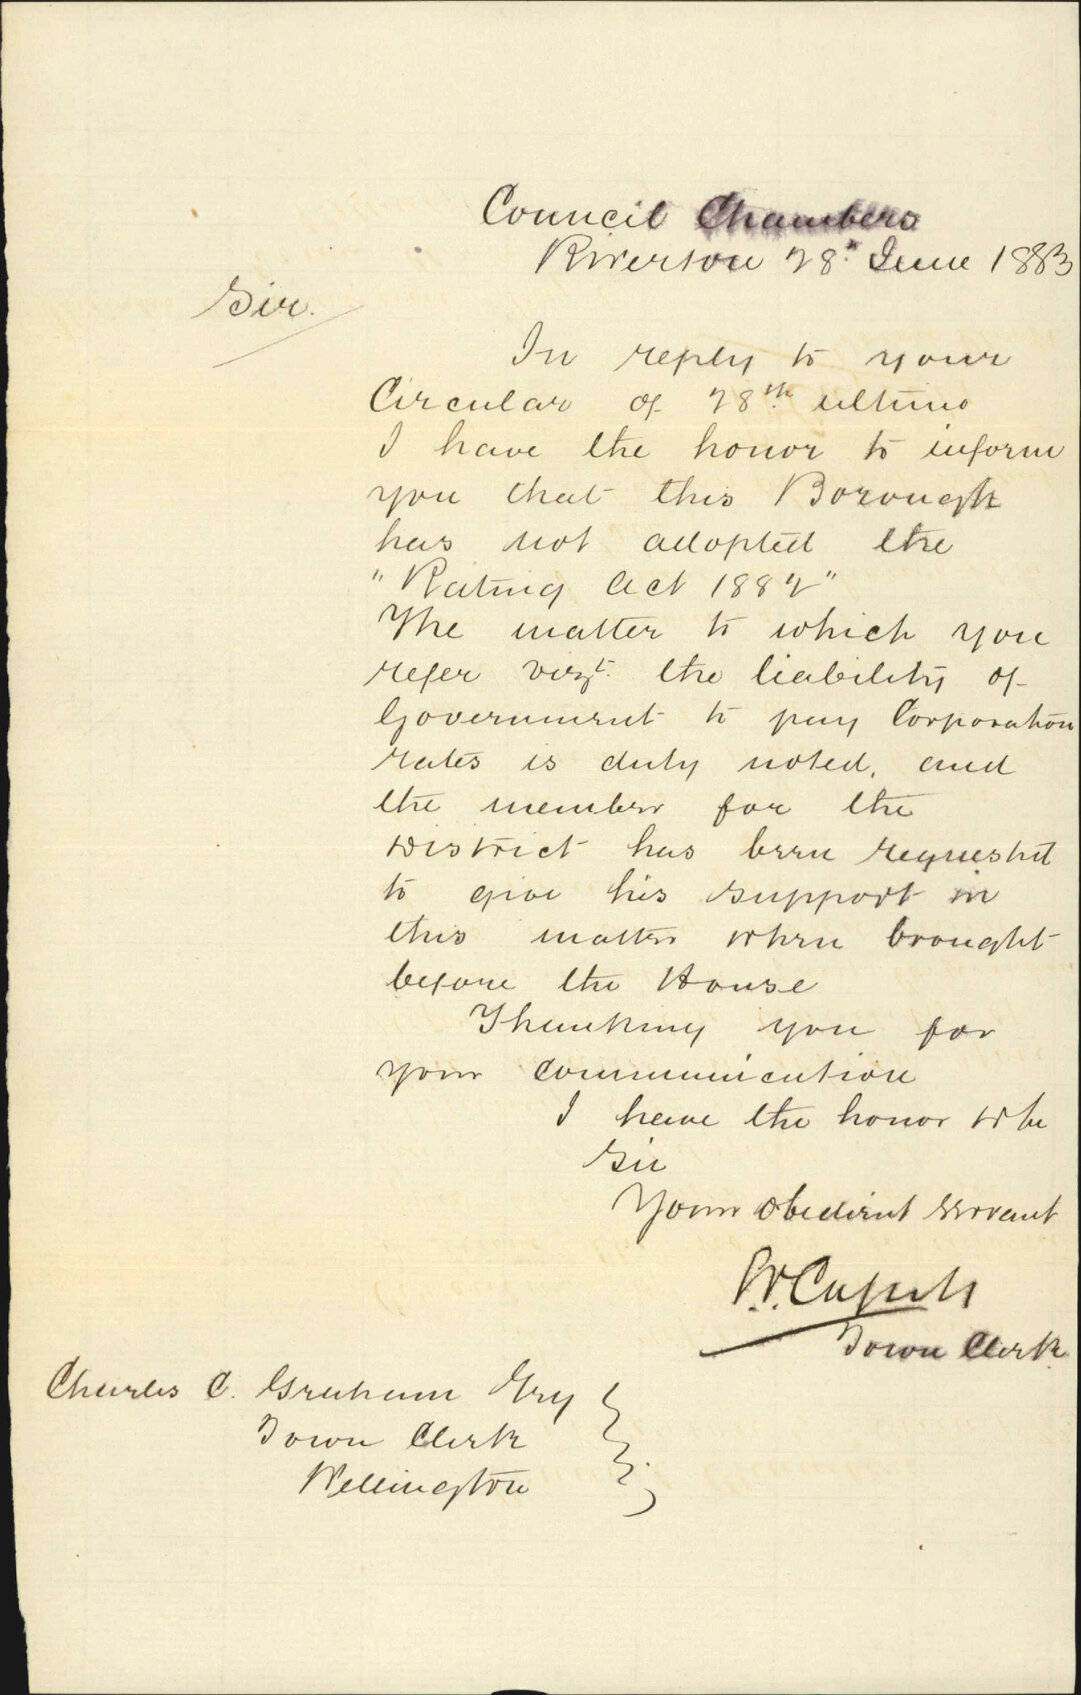 Council Chambers
Riverton 28th June 1883
Sir.
In reply to your
Circular of 28th ultimo
I have the honor to inform
you that this Borough
has not adopted the
"Rating Act 1882"
The matter to which you
refer vizt. the liability of
Government to pay Corporation
rates is duly noted, and
the member for the
District has been requested
to give his support in
this matter when brought
before the House
Thanking you for
your communication
I have the honor to be
Sir
Your obedient servant
Town Clerk
Charles C. Graham Esq
Town Clerk
Wellington